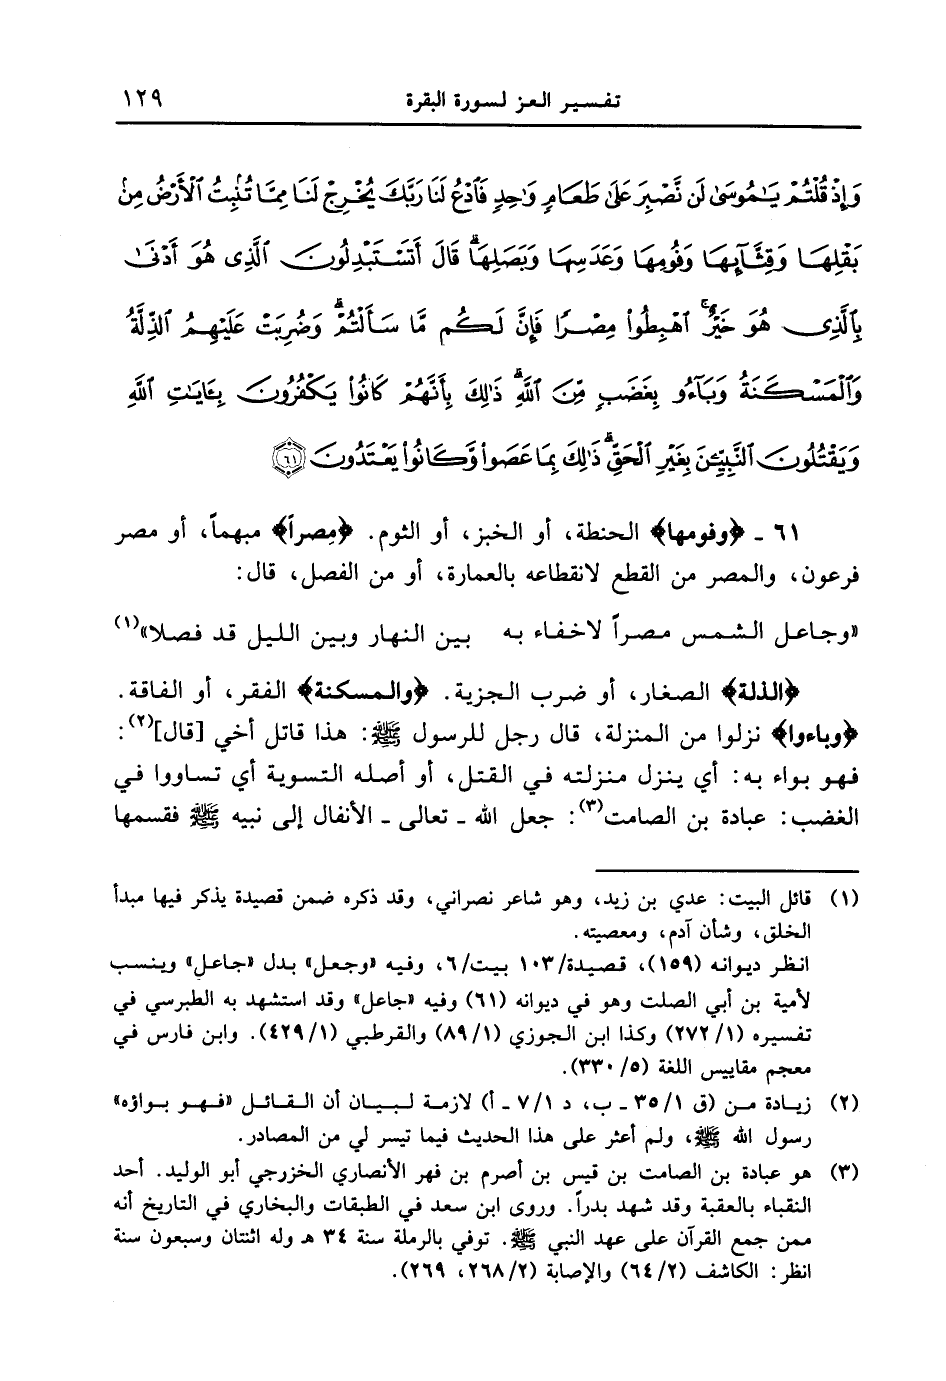 تفسير العز لسورة البقرة ١٢٩
وَإِذْ قُلْتُمْ يَٰمُوسَىٰ لَن نَّصْبِرَ عَلَىٰ طَعَامٍ وَٰحِدٍ فَٱدْعُ لَنَا رَبَّكَ يُخْرِجْ لَنَا مِمَّا تُنۢبِتُ ٱلْأَرْضُ مِنۢ
بَقْلِهَا وَقِثَّآئِهَا وَفُومِهَا وَعَدَسِهَا وَبَصَلِهَا ۖ قَالَ أَتَسْتَبْدِلُونَ ٱلَّذِى هُوَ أَدْنَىٰ
بِٱلَّذِى هُوَ خَيْرٌ ۚ ٱهْبِطُوا۟ مِصْرًا فَإِنَّ لَكُم مَّا سَأَلْتُمْ ۗ وَضُرِبَتْ عَلَيْهِمُ ٱلذِّلَّةُ
وَٱلْمَسْكَنَةُ وَبَآءُو بِغَضَبٍ مِّنَ ٱللَّهِ ۗ ذَٰلِكَ بِأَنَّهُمْ كَانُوا۟ يَكْفُرُونَ بِـَٔايَٰتِ ٱللَّهِ
وَيَقْتُلُونَ ٱلنَّبِيِّـۧنَ بِغَيْرِ ٱلْحَقِّ ۗ ذَٰلِكَ بِمَا عَصَوا۟ وَّكَانُوا۟ يَعْتَدُونَ ٦١
٦١ - ﴿وفومها﴾ الحنطة، أو الخبز، أو الثوم. ﴿مِصراً﴾ مبهماً، أو مصر
فرعون، والمصر من القطع لانقطاعه بالعمارة، أو من الفصل، قال:
«وجاعل الشمس مصراً لاخفاء به بين النهار وبين الليل قد فصلا»(١)
﴿الذلة﴾ الصغار، أو ضرب الجزية. ﴿والمسكنة﴾ الفقر، أو الفاقة.
﴿وباءوا﴾ نزلوا من المنزلة، قال رجل للرسول ﷺ: هذا قاتل أخي [قال](٢):
فهو بواء به: أي ينزل منزلته في القتل، أو أصله التسوية أي تساووا في
الغضب: عبادة بن الصامت(٣): جعل الله - تعالى - الأنفال إلى نبيه ﷺ فقسمها
(١) قائل البيت: عدي بن زيد، وهو شاعر نصراني، وقد ذكره ضمن قصيدة يذكر فيها مبدأ
الخلق، وشأن آدم، ومعصيته.
انظر ديوانه (١٥٩)، قصيدة/١٠٣ بيت/٦، وفيه «وجعل» بدل «جاعل» وينسب
لأمية بن أبي الصلت وهو في ديوانه (٦١) وفيه «جاعل» وقد استشهد به الطبرسي في
تفسيره (٢٧٢/١) وكذا ابن الجوزي (٨٩/١) والقرطبي (٤٢٩/١). وابن فارس في
معجم مقاييس اللغة (٣٣٠/٥).
(٢) زيادة من (ق ٣٥/١ - ب، د ٧/١ - أ) لازمة لبيان أن القائل «فهو بواؤه»
رسول الله ﷺ، ولم أعثر على هذا الحديث فيما تيسر لي من المصادر.
(٣) هو عبادة بن الصامت بن قيس بن أصرم بن فهر الأنصاري الخزرجي أبو الوليد. أحد
النقباء بالعقبة وقد شهد بدراً. وروى ابن سعد في الطبقات والبخاري في التاريخ أنه
ممن جمع القرآن على عهد النبي ﷺ. توفي بالرملة سنة ٣٤ هـ وله اثنتان وسبعون سنة
انظر: الكاشف (٦٤/٢) والإصابة (٢٦٨/٢، ٢٦٩).